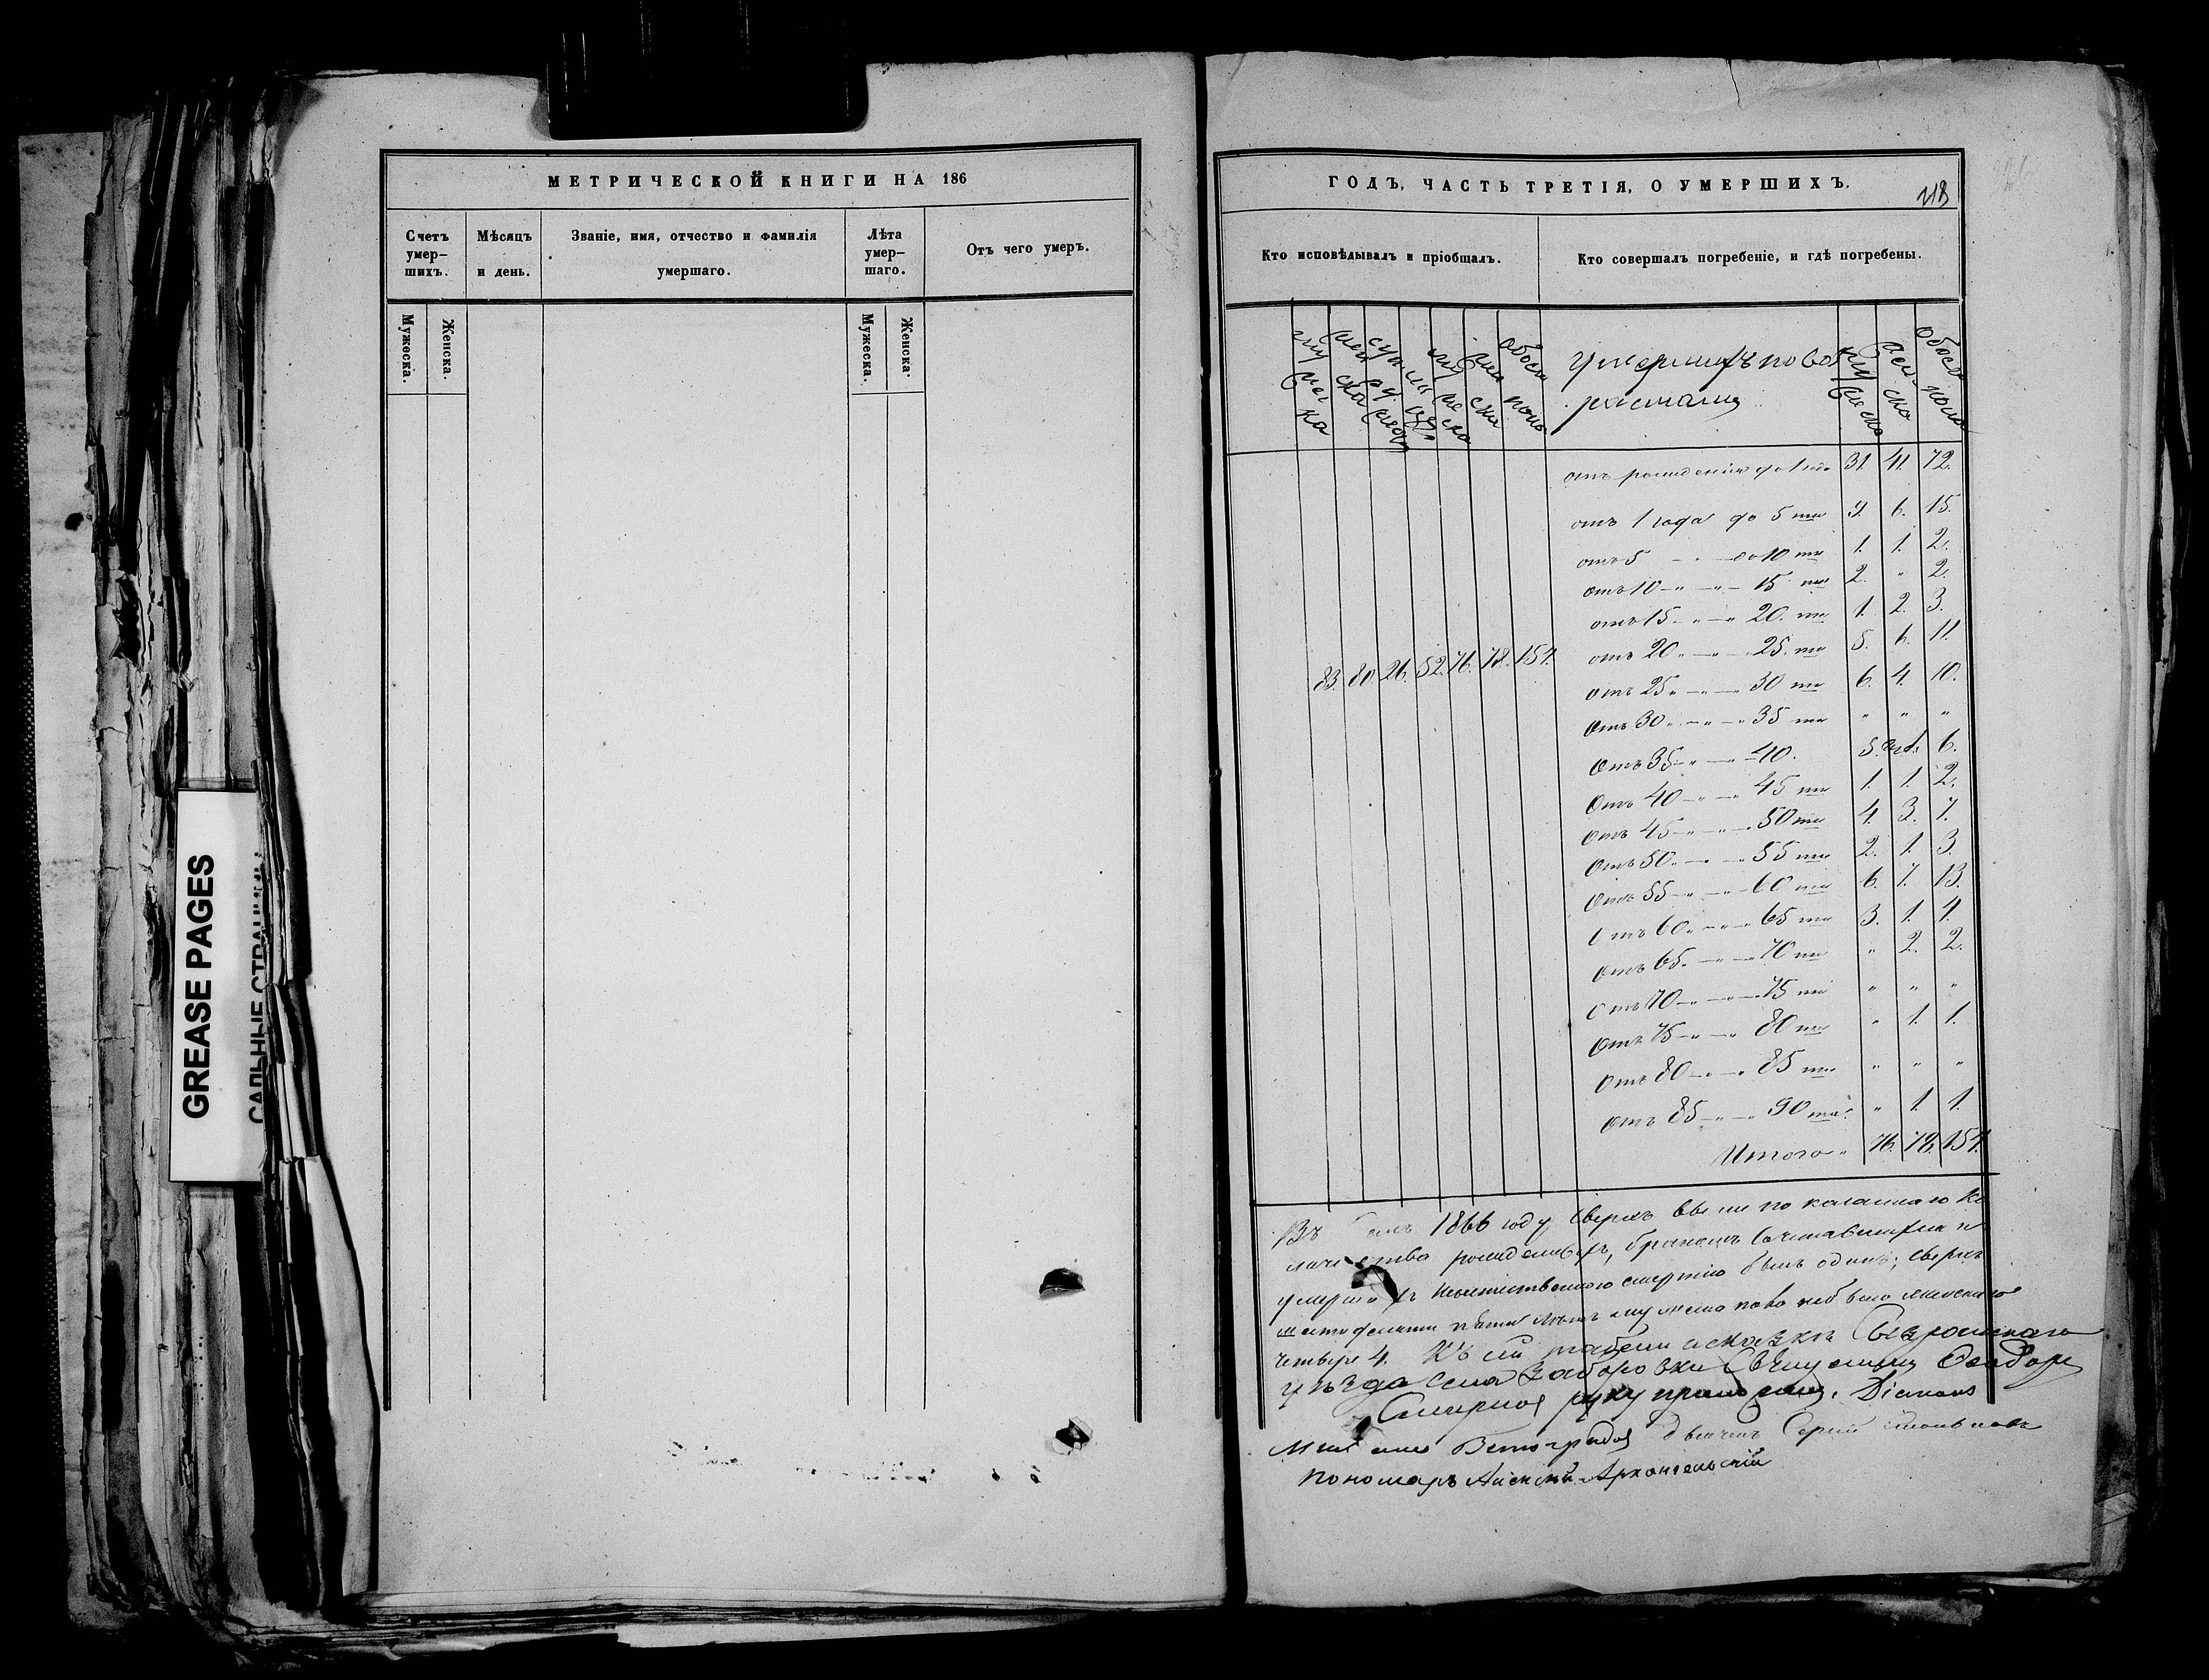 МЕТРИЧЕСКОЙ КНИГИ НА 186
Счетъ умер-
шихъ.
Мѣсяцъ
и день.
Званіе, имя, отчество и фамилія
умершаго.
Лѣта
умер-
шаго.
Отъ чего умеръ.
Мужеска.
Женска.
Мужеска.
Женска.
GREASE PAGES
САЛЬНЫЕ СТРАНИЦЫ
ГОДЪ, ЧАСТЬ ТРЕТІЯ, О УМЕРШИХЪ.
218
Кто исповѣдывалъ и пріобщалъ.
Кто совершалъ погребеніе, и гдѣ погребены.
мужеска
женска
супружествъ
мужеска
женска
обоего пола
Умершихъ по воз
растамъ
мужеска
женска
обоего пола
83. 80. 26. 52. 76. 78. 154.
отъ рожденія до 1 года 31. 41. 72.
отъ 1 года до 5 ти 9. 6. 15.
отъ 5 до 10 ти 1. 1. 2.
отъ 10 - " - " - 15 ти 2. " 2.
отъ 15 - " - " 20. ти 1. 2. 3.
отъ 20 " - " 25. ти 5. 6. 11.
отъ 25 " - " 30 ти 6. 4. 10.
отъ 30 " - " - " 35 ти " " "
отъ 35 - " - " 40. 5. 1. 6.
отъ 40 - " - " 45 ти 1. 1. 2.
отъ 45 - " - " 50 ти 4. 3. 7.
отъ 50 " - " 55 ти 2. 1. 3.
отъ 55 - " - " 60 ти 6. 7. 13.
отъ 60 " - " 65 ти 3. 1. 4.
отъ 65 " - " 70 ти " 2. 2.
отъ 70 - " - " 75 ти " " "
отъ 75 - " - " 80 ти " 1. 1.
отъ 80 - " - " 85 ти " " "
отъ 85 - " - " 90 та. " 1. 1.
Итого " 76. 78. 154.
Въ 1866 году сверхъ выше по казаннаго ко
личества рожденныхъ, бракомъ сочитавшихся и
умершихъ неестественною смертію былъ одинъ; сверхъ
мужеска пола женскаго
четыре 4. Къ сей Сызранскаго
уѣзда села Заборовки Священникъ Ѳеодоръ
Смирнов руку приложилъ. Діаконъ
Виноградов дьячекъ Сергій
пономарь Алексѣй Архангельскій